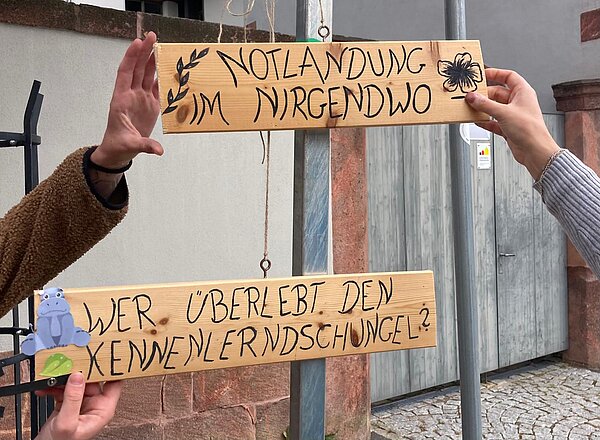 NOTLANDUNG
IM NIRGENDWO
WER ÜBERLEBT DEN
KENNENLERNDSCHUNGEL?